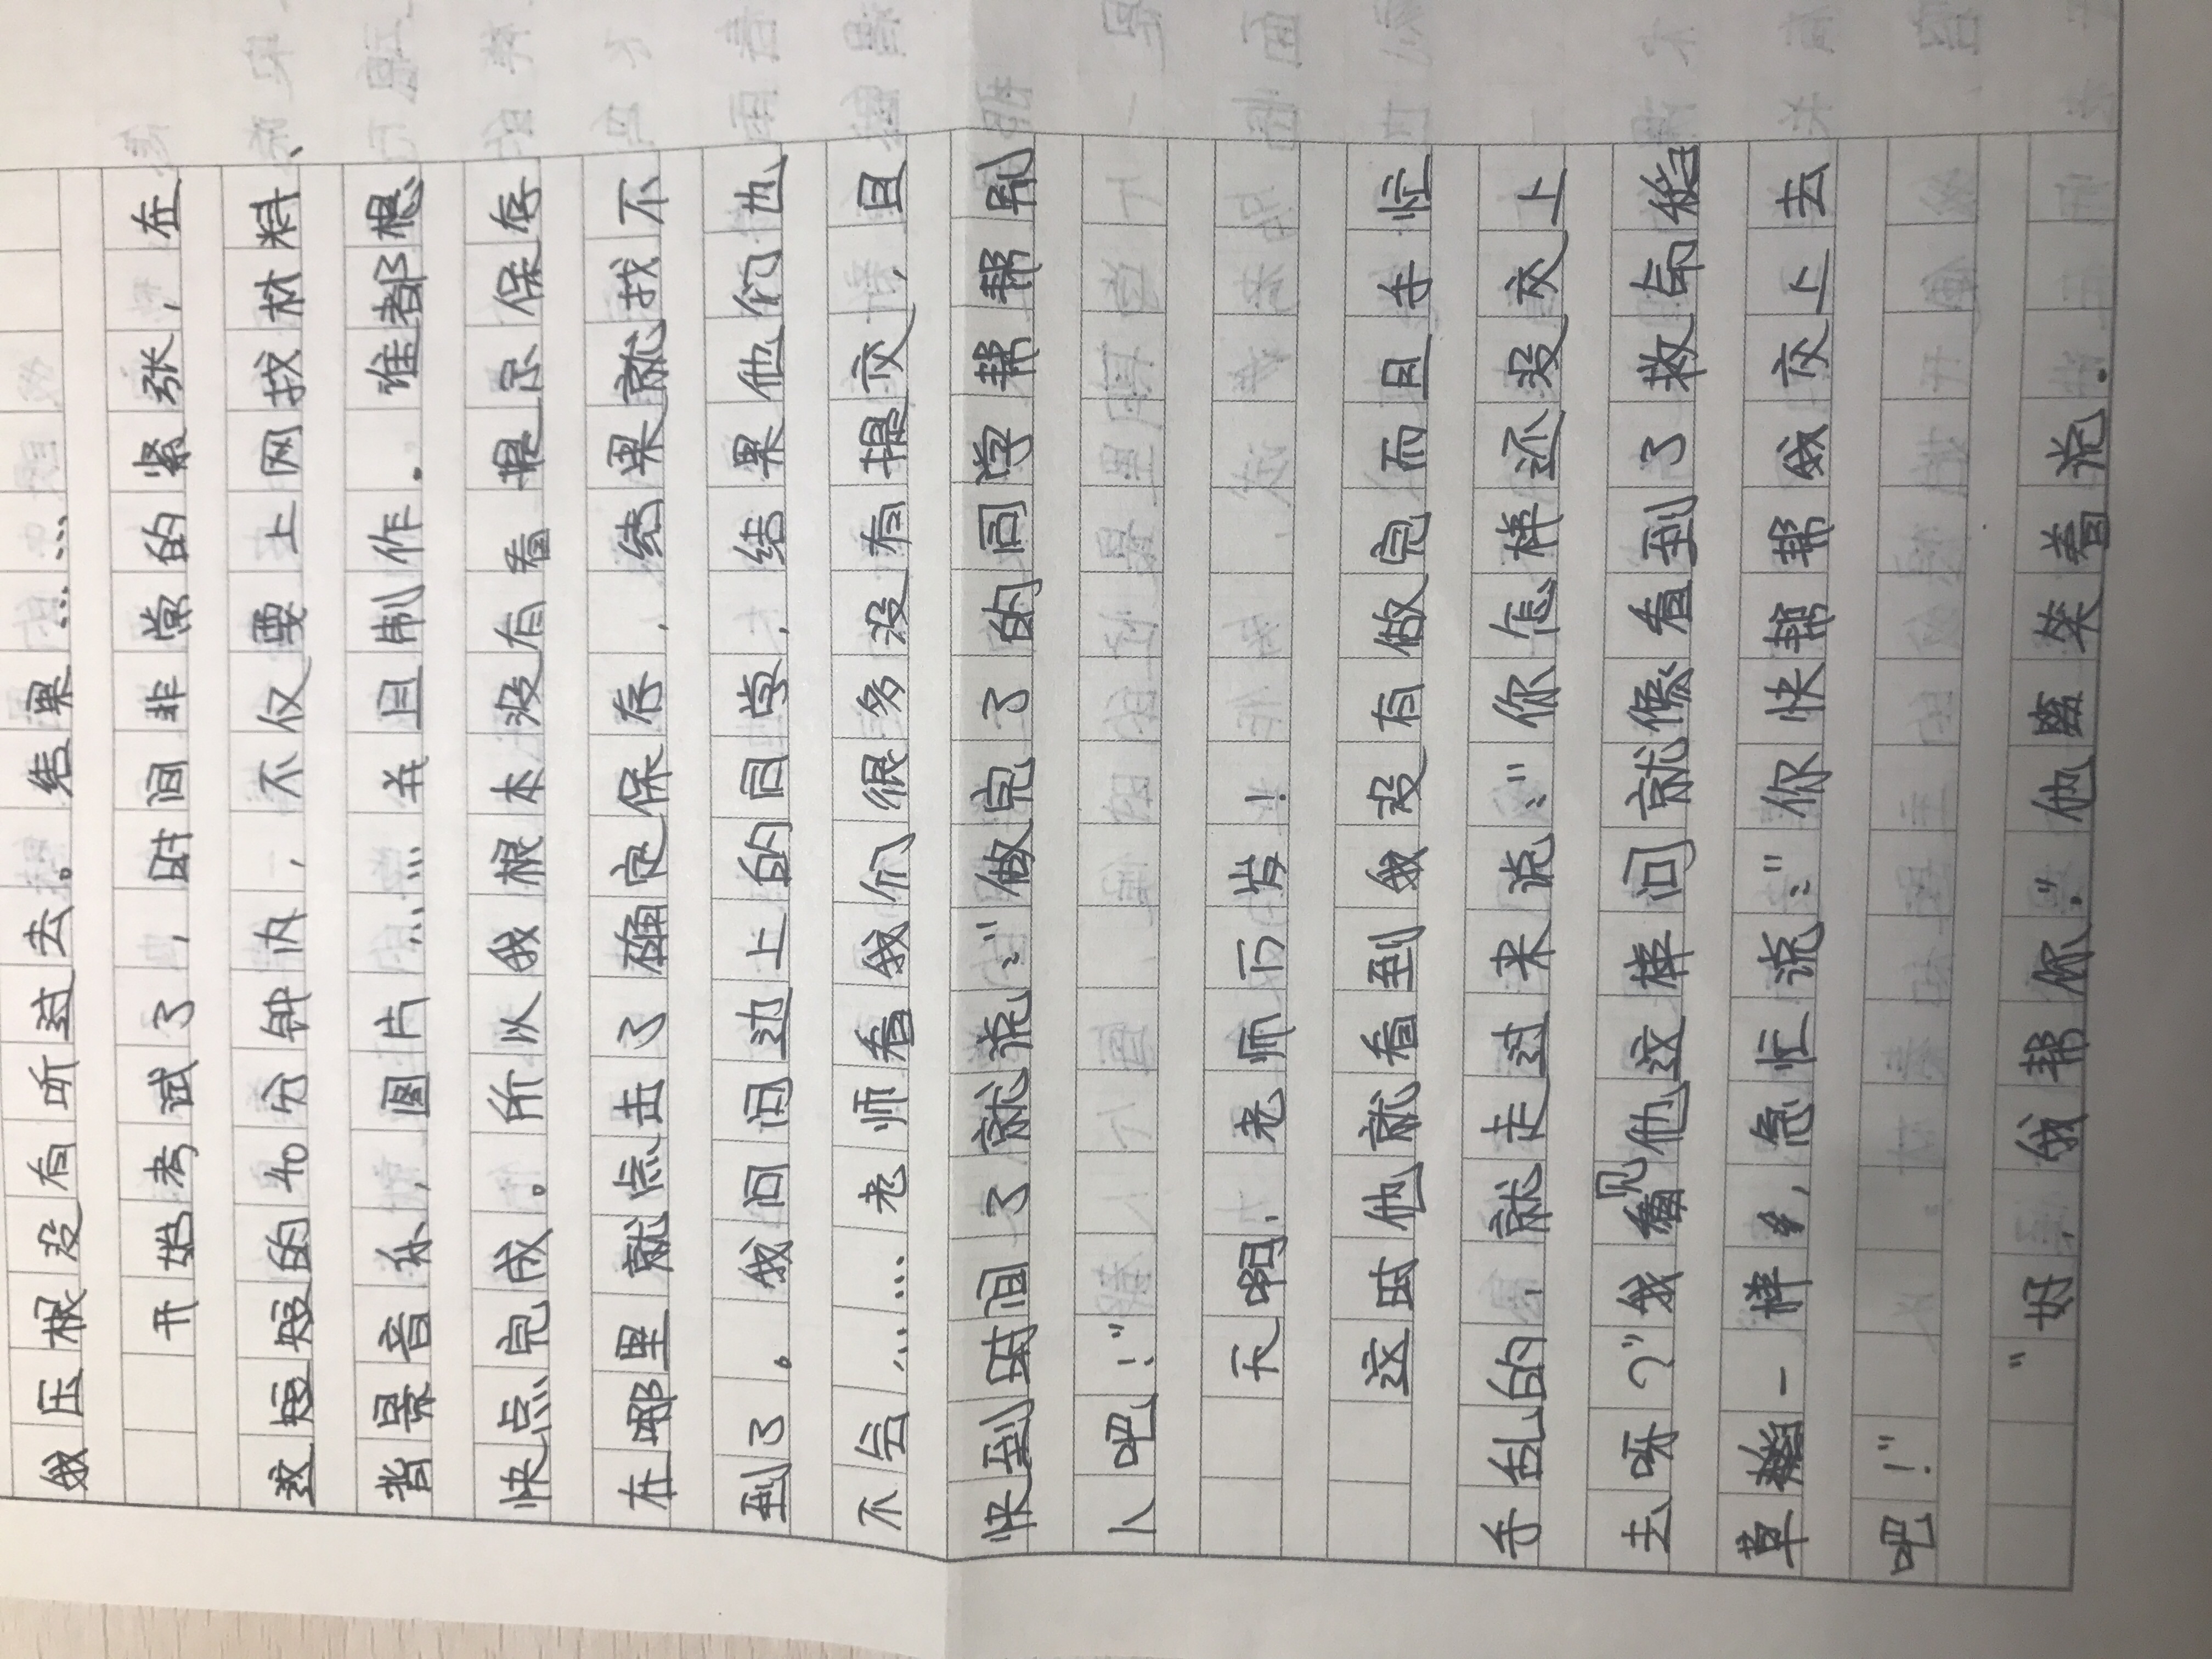 我压根没有听过去。结果……
开始考试了，时间非常的紧张，在
这短短的40分钟内，不仅要上网找材料、
背景音乐，图片……并且制作。谁都想
快点完成。所以我根本没有看提示保存
在哪里就点击了确定保存，结果就找不
到了。我问问边上的同学，结果他们也
不会……老师看我们很多没有提交，且
快到时间了就说："做完了的同学帮帮别
人吧！"
天啊，老师万岁！
这时他就看到我没有做完而且手忙
手乱的，就走过来说："你怎样还没交上
去呀？"我见他这样问就像看到了救命稻
草一样，急忙说："你快帮帮我交上去
吧！"
"好，我帮你."他笑着说.